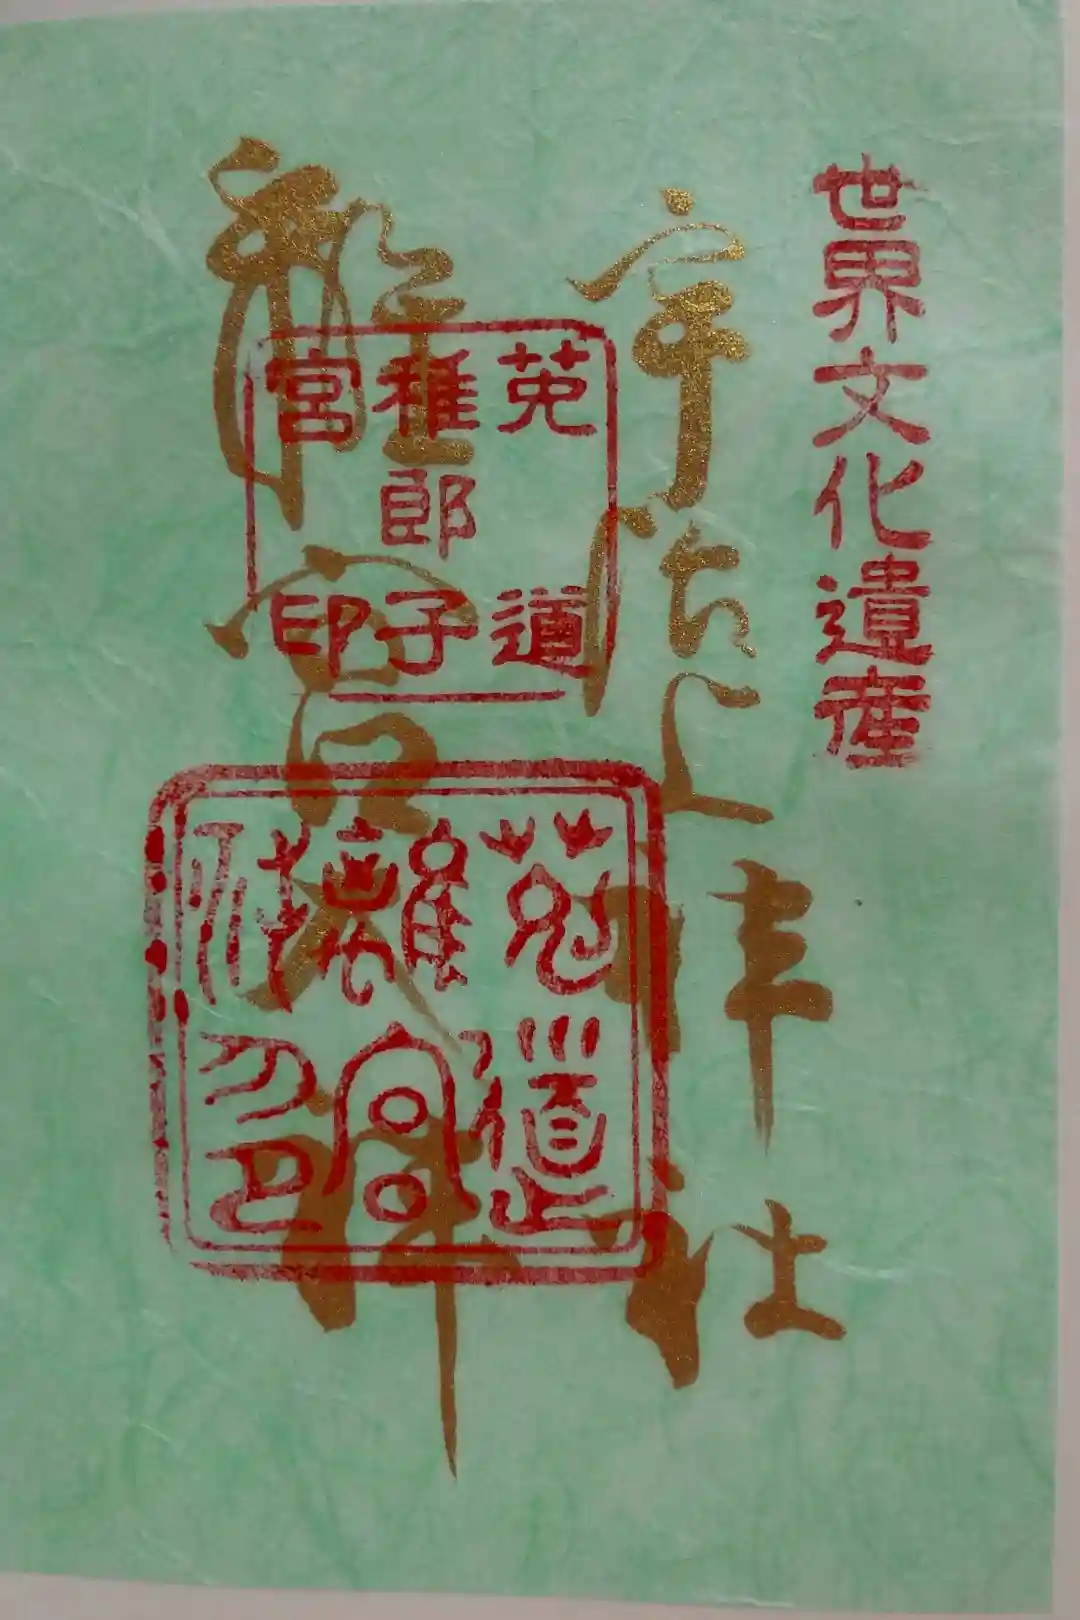 世界文化遺産
宇治上神社
離宮大神
莵道
稚郎子
宮印
菟道
離宮